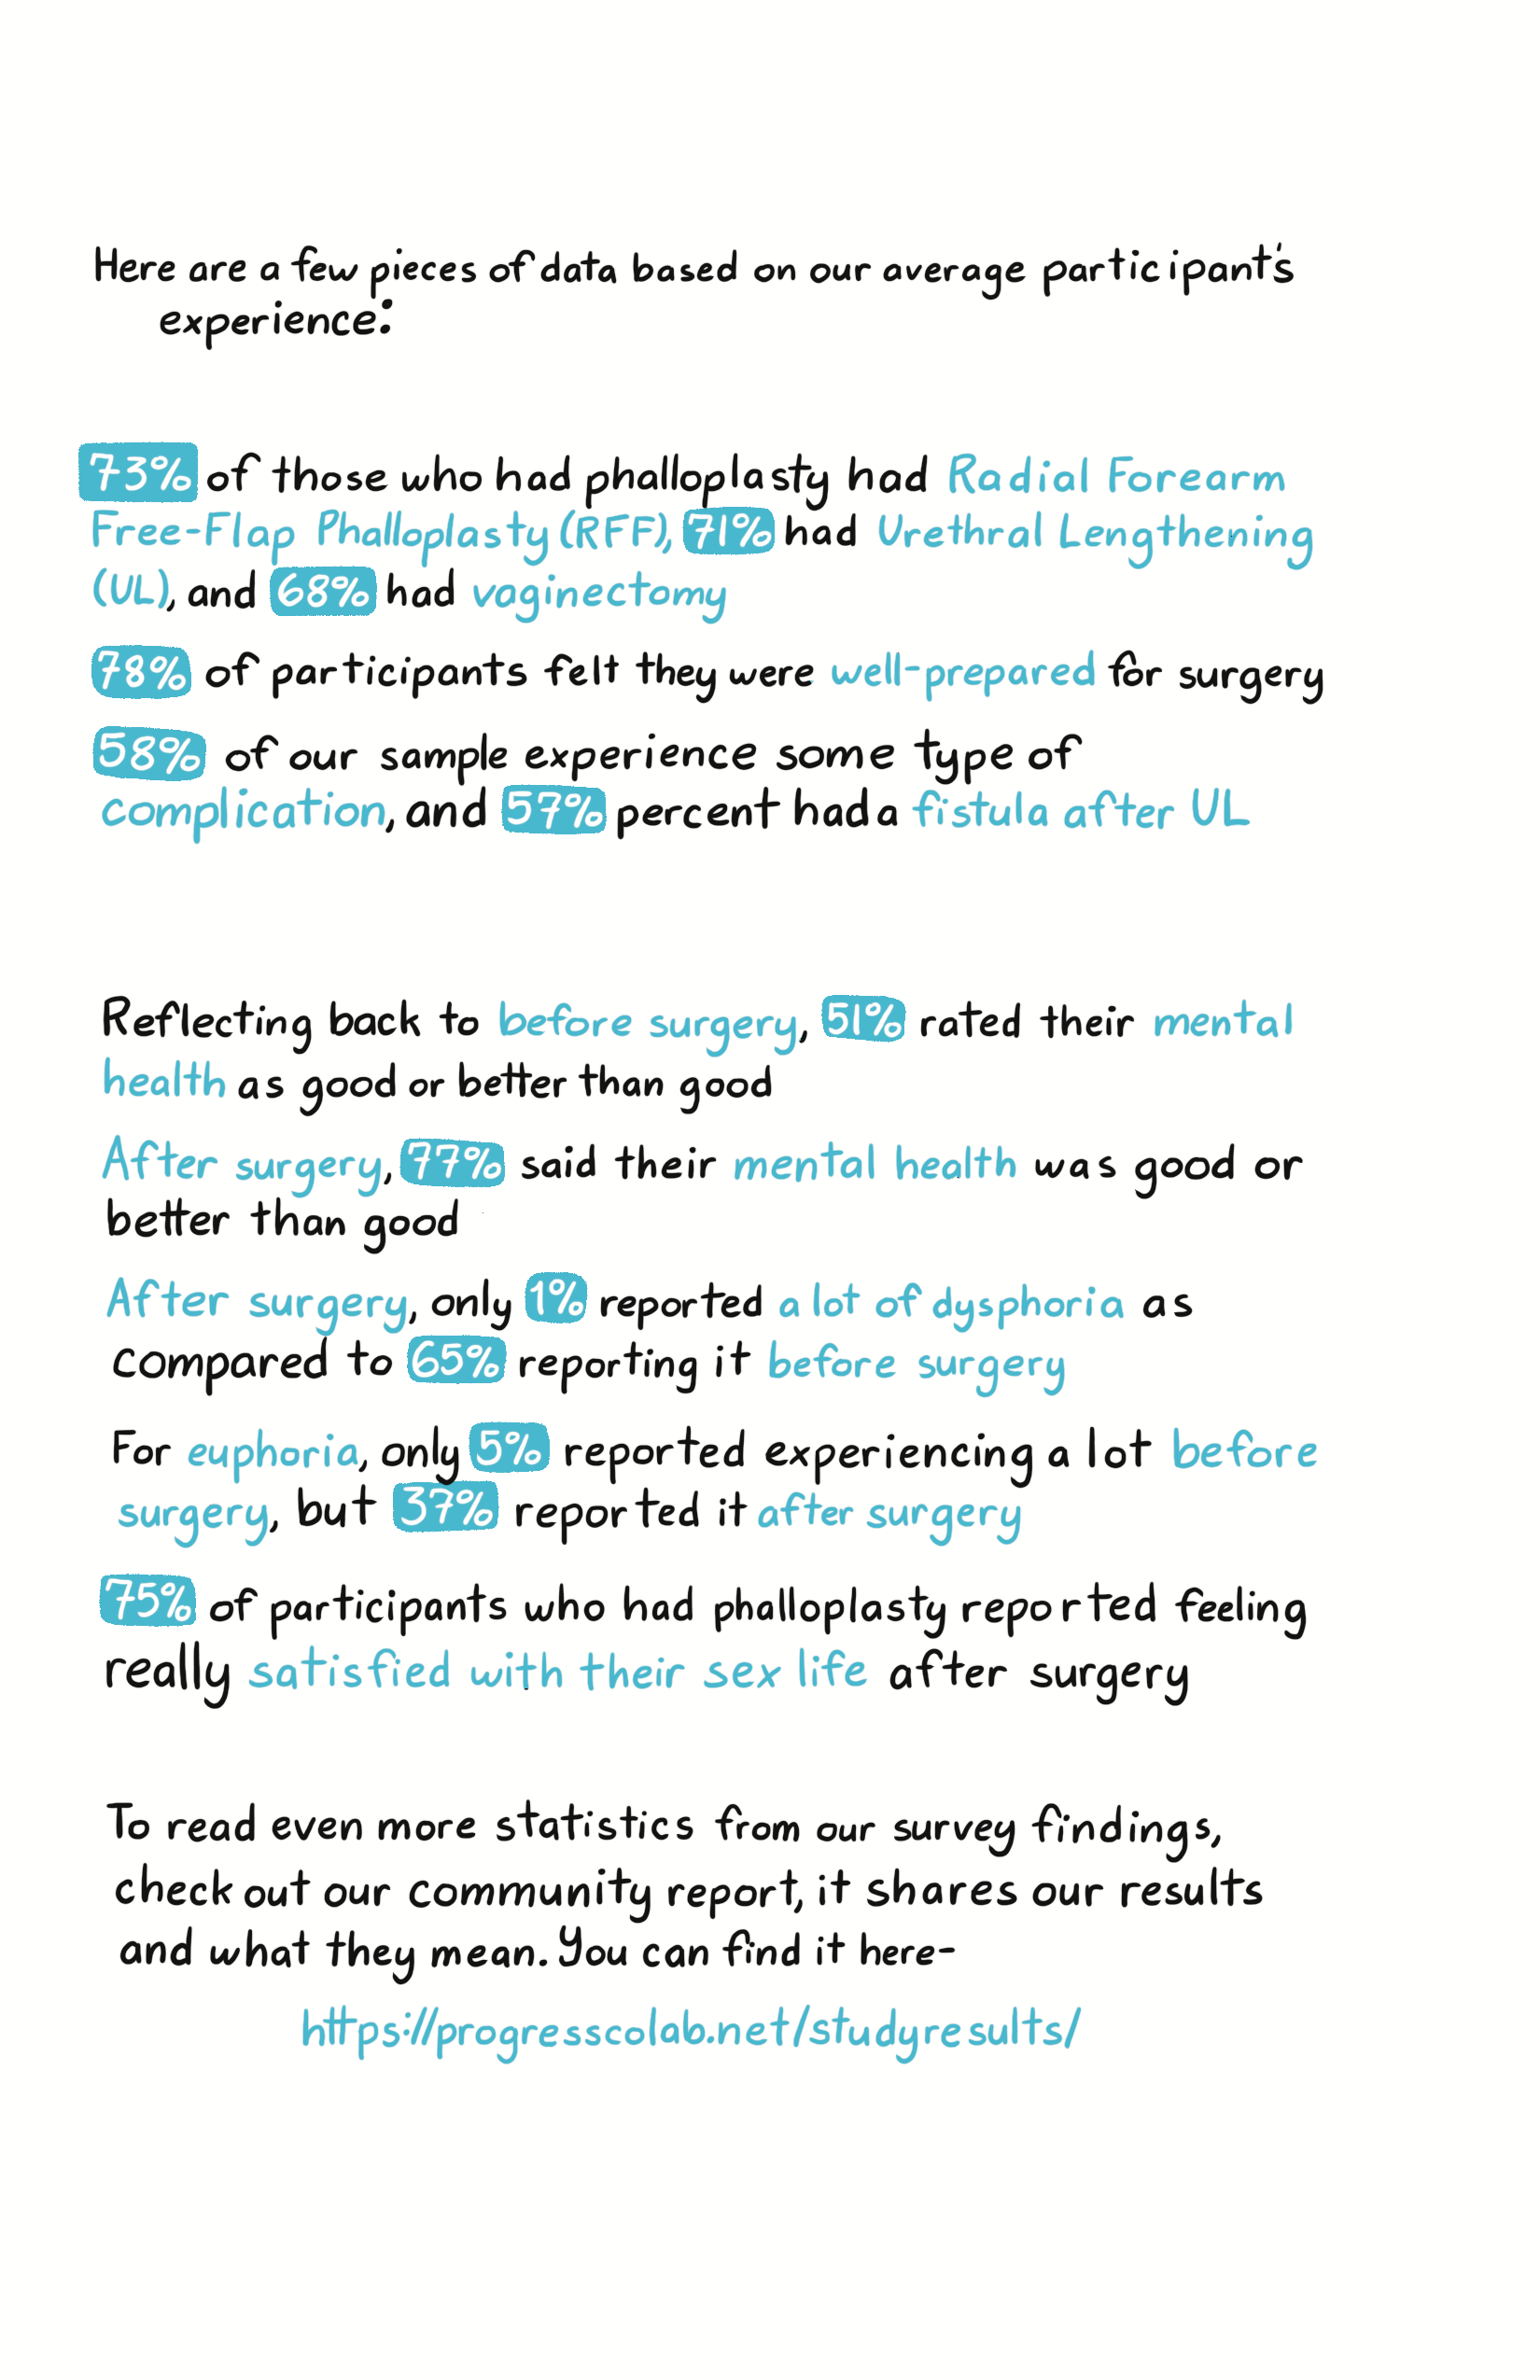 Here are a few pieces of data based on our average participant's
experience:
73% of those who had phalloplasty had Radial Forearm
Free-Flap Phalloplasty (RFF), 71% had Urethral Lengthening
(UL), and 68% had vaginectomy
78% of participants felt they were well-prepared for surgery
58% of our sample experience some type of
complication, and 57% percent had a fistula after UL
Reflecting back to before surgery, 51% rated their mental
health as good or better than good
After surgery, 77% said their mental health was good or
better than good
After surgery, only 1% reported a lot of dysphoria as
compared to 65% reporting it before surgery
For euphoria, only 5% reported experiencing a lot before
surgery, but 37% reported it after surgery
75% of participants who had phalloplasty reported feeling
really satisfied with their sex life after surgery
To read even more statistics from our survey findings,
check out our community report, it shares our results
and what they mean. You can find it here-
https://progresscolab.net/studyresults/